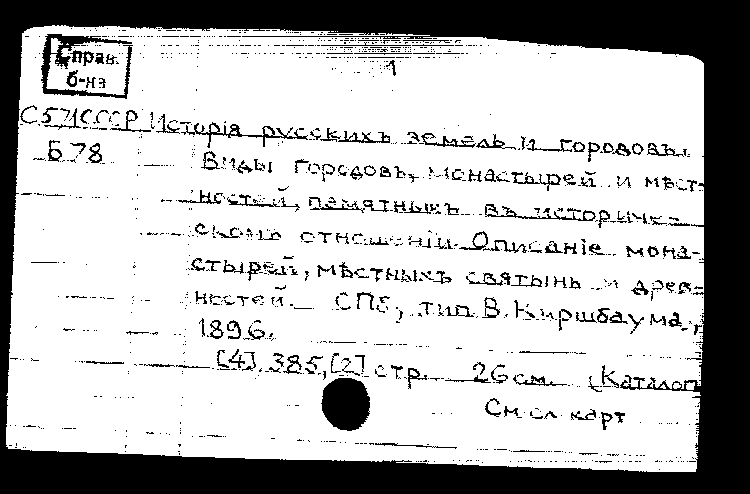 Справ.
б-ка
1
С571СССР Исторія русскихъ земель и городовъ.
Б78 Виды городовъ, монастырей и мѣст-
ностей, памятныхъ въ историче-
скомъ отношеніи. Описаніе мона-
стырей, мѣстныхъ святынь и древ-
ностей. СПб, тип. В. Киршбаума,
1896.
[4], 385, [2] стр. 26 см. (Каталог
См сл карт